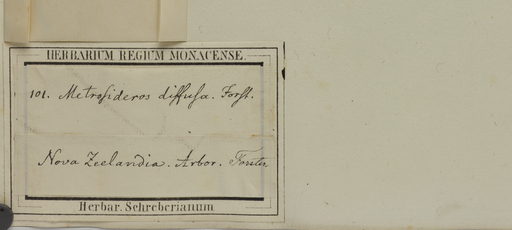 HERBARIUM REGIUM MONACENSE.
101. Metrosideros diffusa. Forst.
Nova Zeelandia. Arbor. Forster
Herbar. Schreberianum